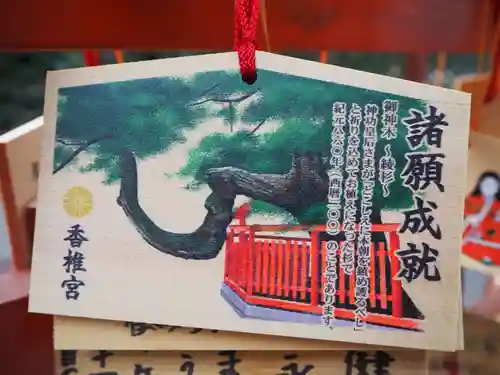 諸願成就
御神木 ~綾杉~
神功皇后さまが「とこしえに本朝を鎮め護るべし」
と祈りを込めてお植えになった杉で
紀元八六〇年(西暦二〇〇)のことであります。
香椎宮